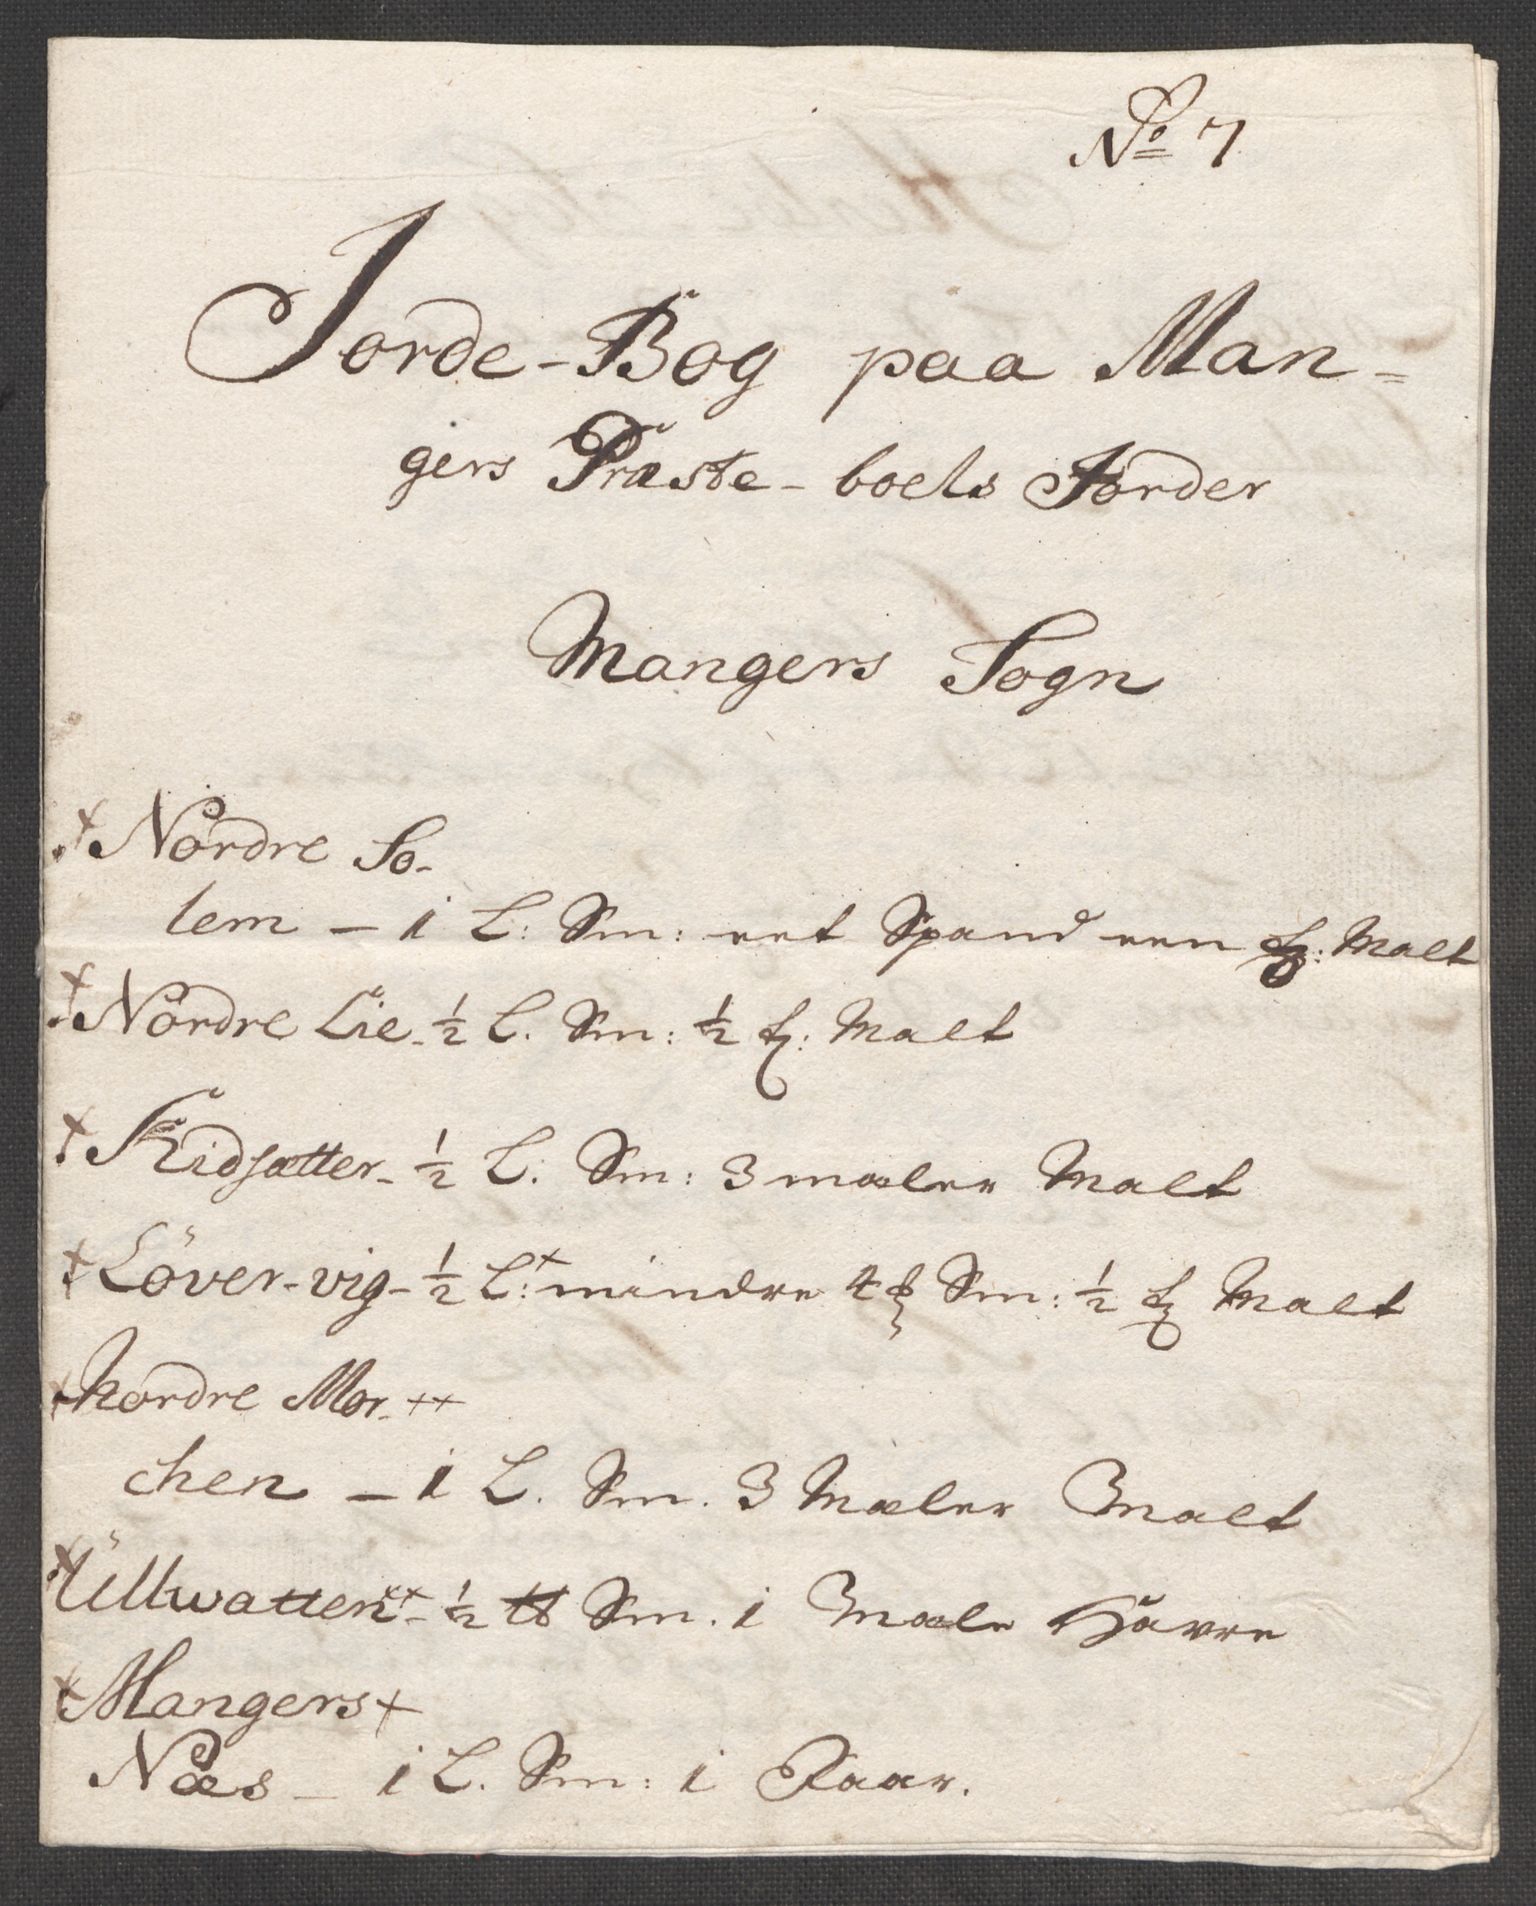 No 7
Jorde-Bog paa Man-
gers Præste-boels Jorder
Mangers Sogn
Nordre So-
lem - 1 L: Sm: eet Spand een Malt
Nordre Lie - ½ L. Sm: ½ Malt
Kidsætter - ½ L: Sm: 3 mæler Malt
Löver-vig - ½ L: mindre 4 Sm: ½ Malt
Nordre Mor-
chen - 1 L. Sm. 3 Mæler Malt
Ullwatten - ½ Sm. 1 Mæle Havre
Mangers
Næs - 1 L. Sm: 1 Faar.